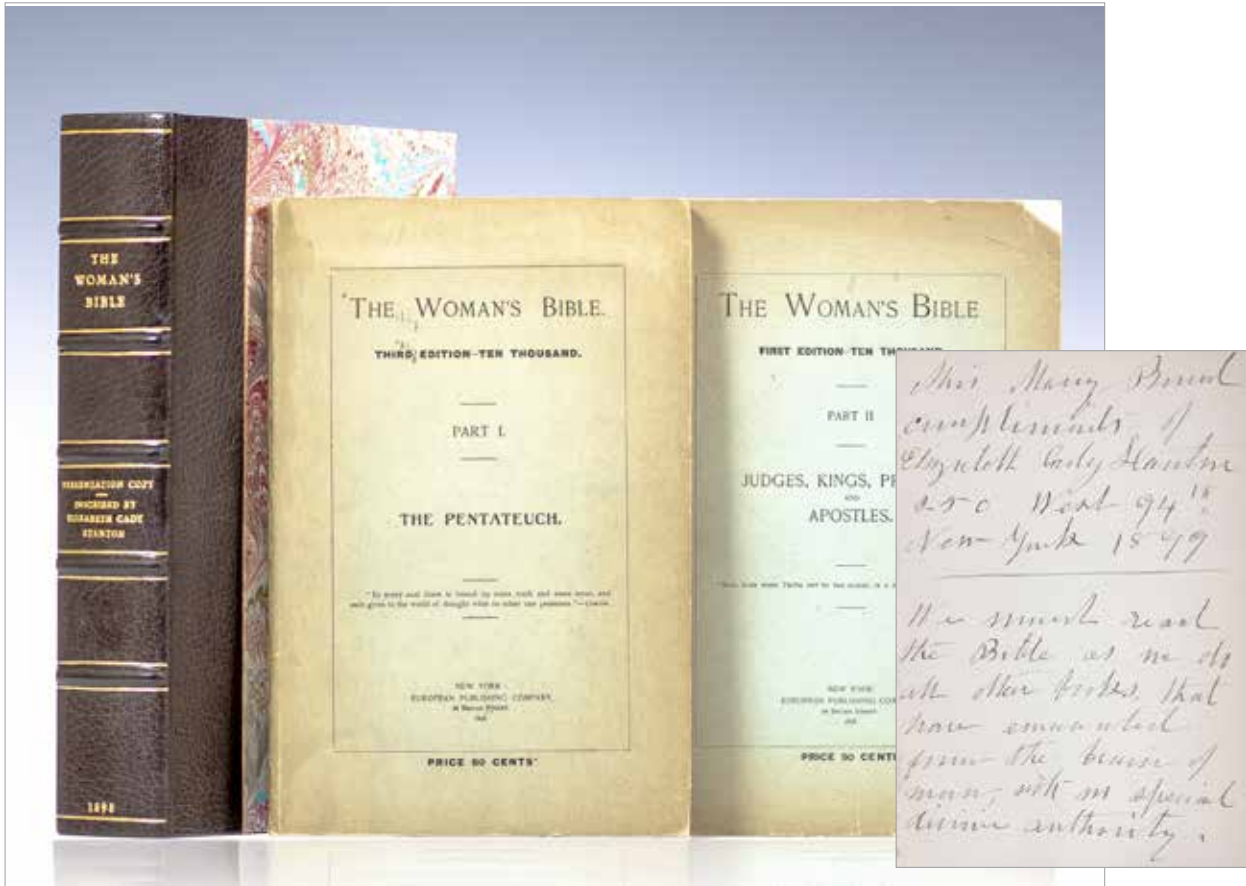 THE
WOMAN'S
BIBLE
PRESENTATION COPY
INSCRIBED BY
ELIZABETH CADY
STANTON
1898
THE WOMAN'S BIBLE.
THIRD EDITION—TEN THOUSAND.
PART I.
THE PENTATEUCH.
"In every soul there is bound up some truth and some error, and
each gives to the world of thought what no other one possesses."—Cousin.
NEW YORK
EUROPEAN PUBLISHING COMPANY,
PRICE 50 CENTS
THE WOMAN'S BIBLE
FIRST EDITION—TEN
PART II
JUDGES, KINGS,
AND
APOSTLES.
NEW YORK
EUROPEAN PUBLISHING
PRICE 50
Miss Mary
compliments of
Elizabeth Cady Stanton
250 West 94th
New York
We must read
the Bible as we do
all other books, that
have emanated
from the brain of
man, with no special
divine authority.